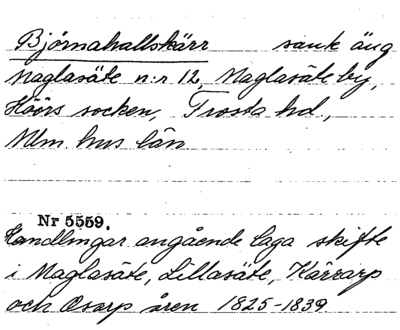 Björnahallskärr sank äng
Maglasäte n:r 12, Maglasäte by,
Höörs socken, Frosta hd.,
Mlm. hus län
Nr 5559.
Handlingar angående laga skifte
i Maglasäte, Lillasäte, Kärrarp
och Osarp åren 1825-1839.